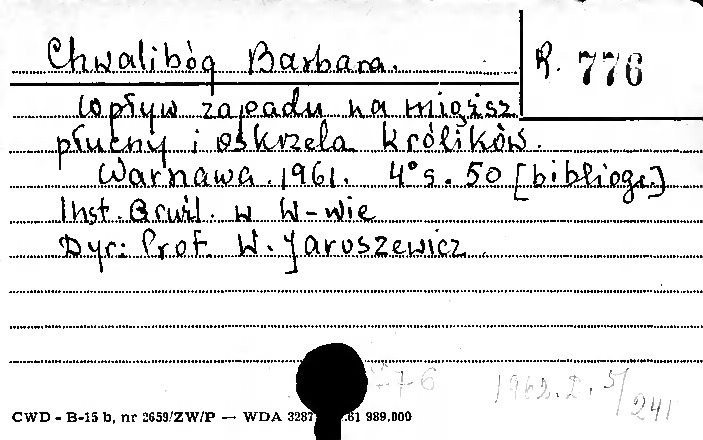 Chwalibóg Barbara.
R. 776
Wpływ zapadu na miąższ
płucny i oskrzela królików.
Warszawa. 1961. 4° s. 50 [bibliogr.]
Inst. Gruźl. w W-wie
Dyr: Prof. W. Jaroszewicz
1962. I. 5/241
CWD - B-15 b, nr 2659/ZW/P — WDA 3287 .61 989.000